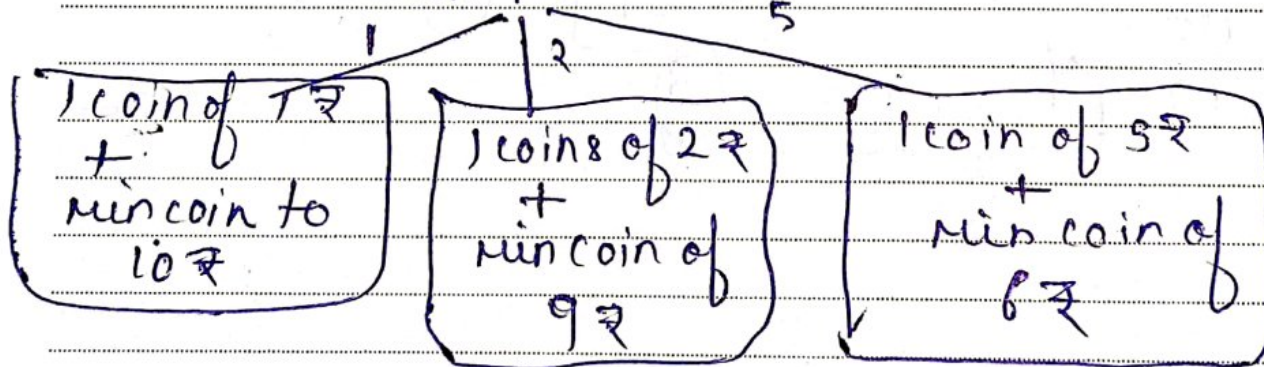 1 2 5
1 coin of 1₹
+
min coin to
10₹
1 coins of 2₹
+
min coin of
9₹
1 coin of 5₹
+
min coin of
6₹